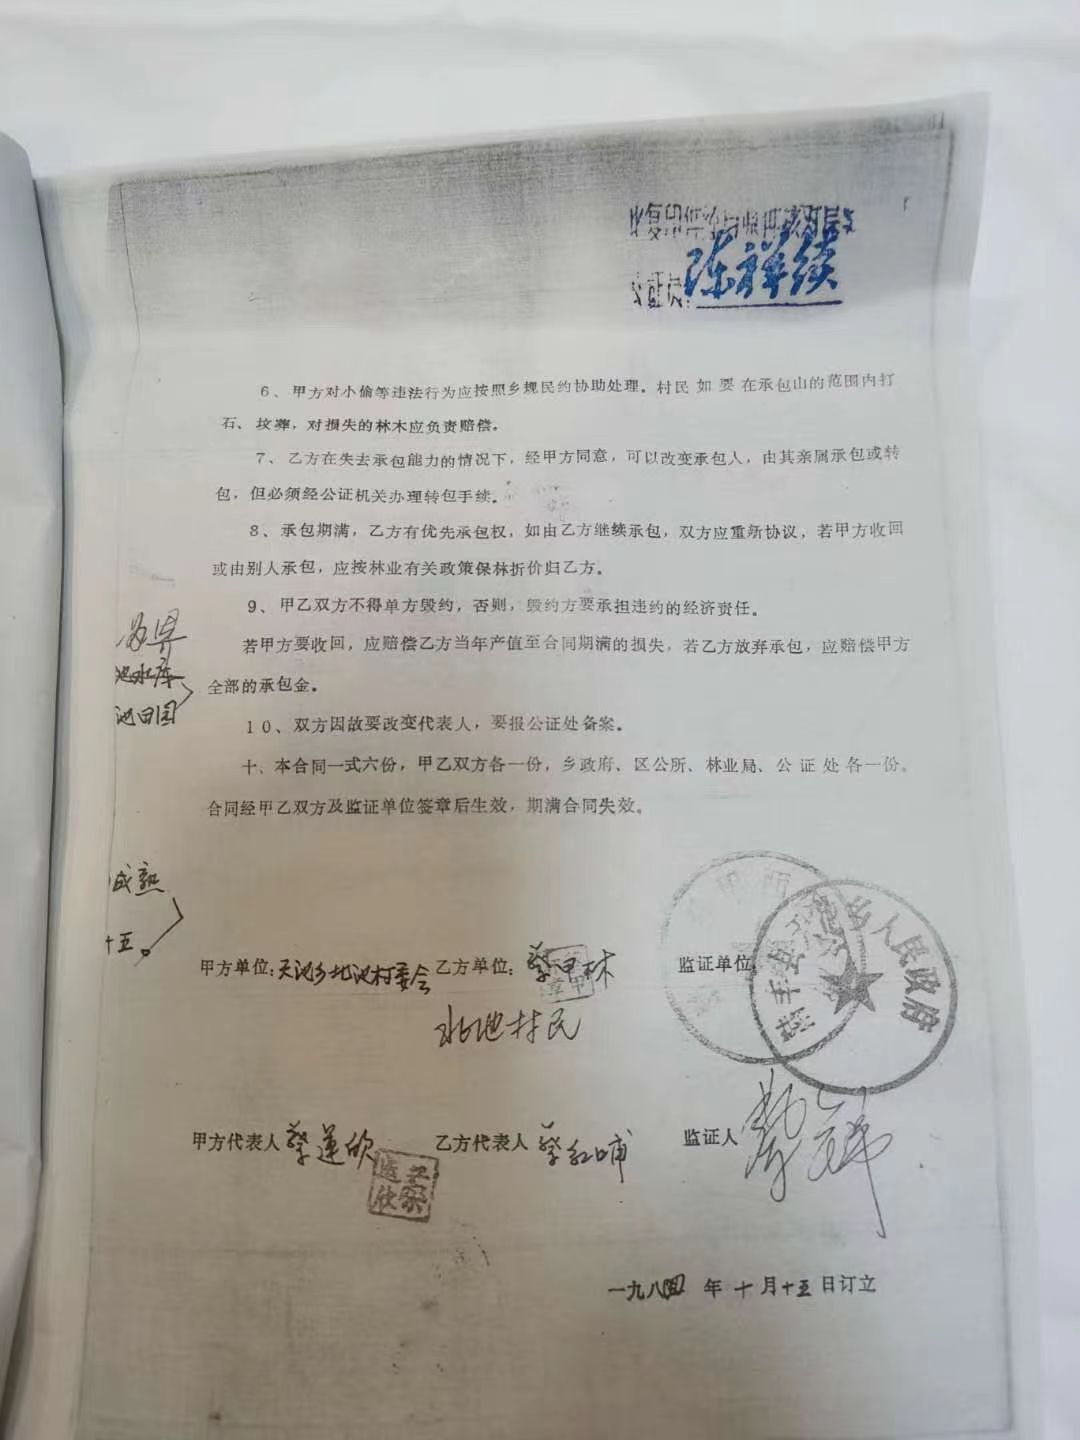 陈祥续
6、甲方对小偷等违法行为应按照乡规民约协助处理。村民如要在承包山的范围内打
石、坟葬，对损失的林木应负责赔偿。
7、乙方在失去承包能力的情况下，经甲方同意，可以改变承包人，由其亲属承包或转
包，但必须经公证机关办理转包手续。
8、承包期满，乙方有优先承包权，如由乙方继续承包，双方应重新协议，若甲方收回
或由别人承包，应按林业有关政策保林折价归乙方。
9、甲乙双方不得单方毁约，否则，毁约方要承担违约的经济责任。
若甲方要收回，应赔偿乙方当年产值至合同期满的损失，若乙方放弃承包，应赔偿甲方
全部的承包金。
10、双方因故要改变代表人，要报公证处备案。
十、本合同一式六份，甲乙双方各一份，乡政府、区公所、林业局、公证处各一份。
合同经甲乙双方及监证单位签章后生效，期满合同失效。
池水库
池田园
成熟
十五。
甲方单位：天池乡北池村委会 乙方单位：蔡甲林 监证单位
北池村民
乡人民政府
甲方代表人蔡莲欣 乙方代表人蔡红哺 监证人
一九八四年十月十五日订立